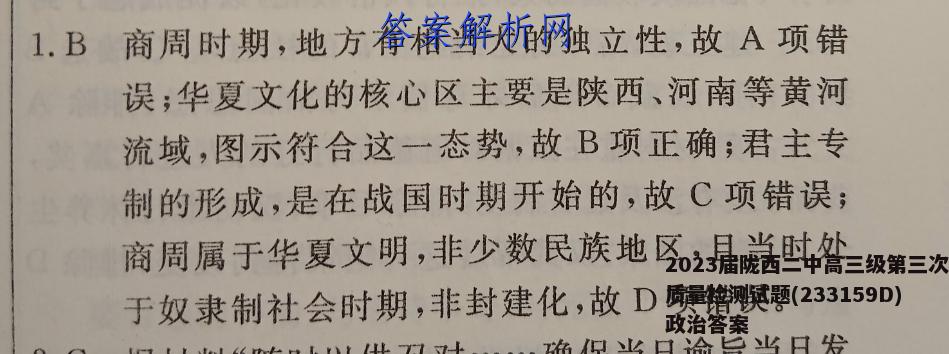 答案解析网
1.B 商周时期,地方有相当大的独立性,故 A 项错
误;华夏文化的核心区主要是陕西、河南等黄河
流域,图示符合这一态势,故 B 项正确;君主专
制的形成,是在战国时期开始的,故 C 项错误;
商周属于华夏文明,非少数民族地区,且当时处
于奴隶制社会时期,非封建化,故 D 项错误。
2023届陇西二中高三级第三次
质量检测试题(233159D)
政治答案